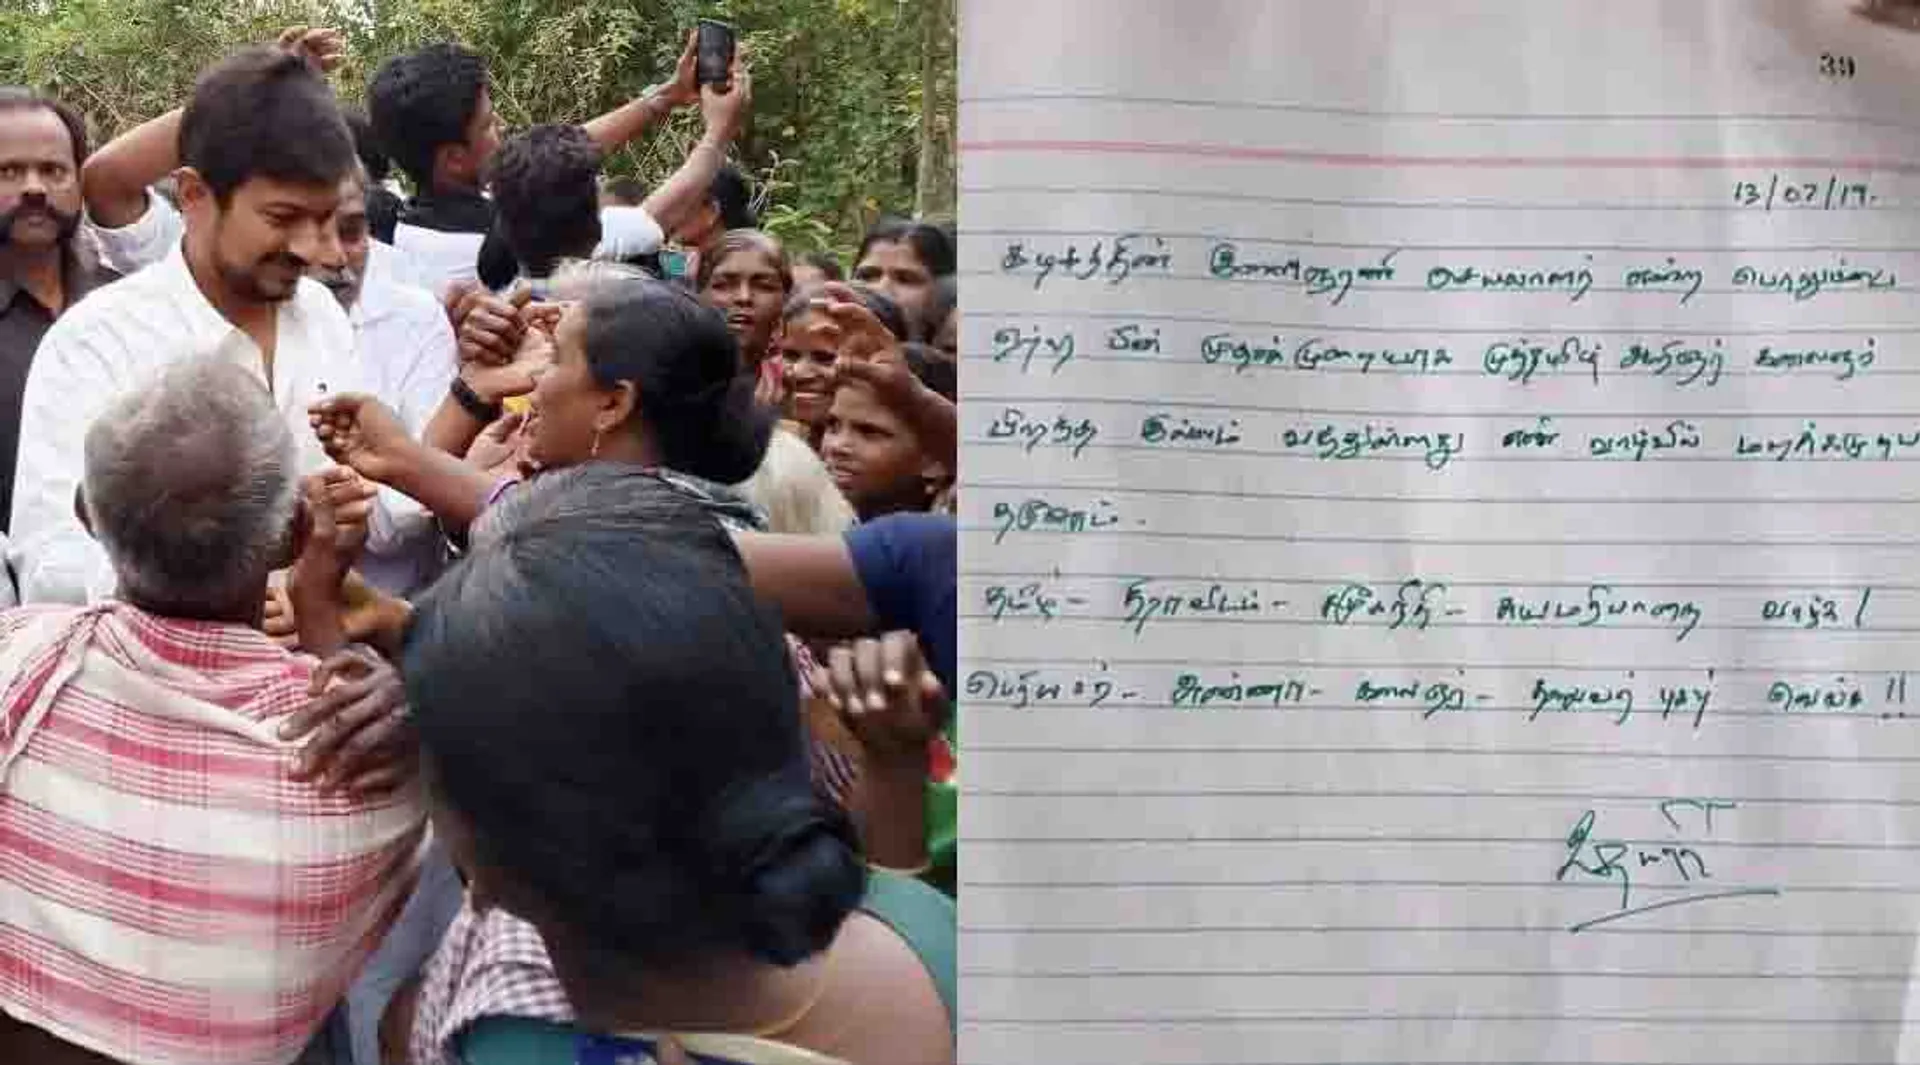 39
13/07/19.
கழகத்தின் இளைஞரணி செயலாளர் என்ற பொறுப்பை
ஏற்ற பின் முதன்முறையாக முத்தமிழ் அறிஞர் கலைஞர்
பிறந்த இல்லம் வந்துள்ளது என் வாழ்வில் மறக்கமுடியா
தருணம்.
தமிழ் - திராவிடம் - சமூகநீதி - சுயமரியாதை வாழ்க!
பெரியார் - அண்ணா - கலைஞர் - தலைவர் புகழ் வெல்க!!